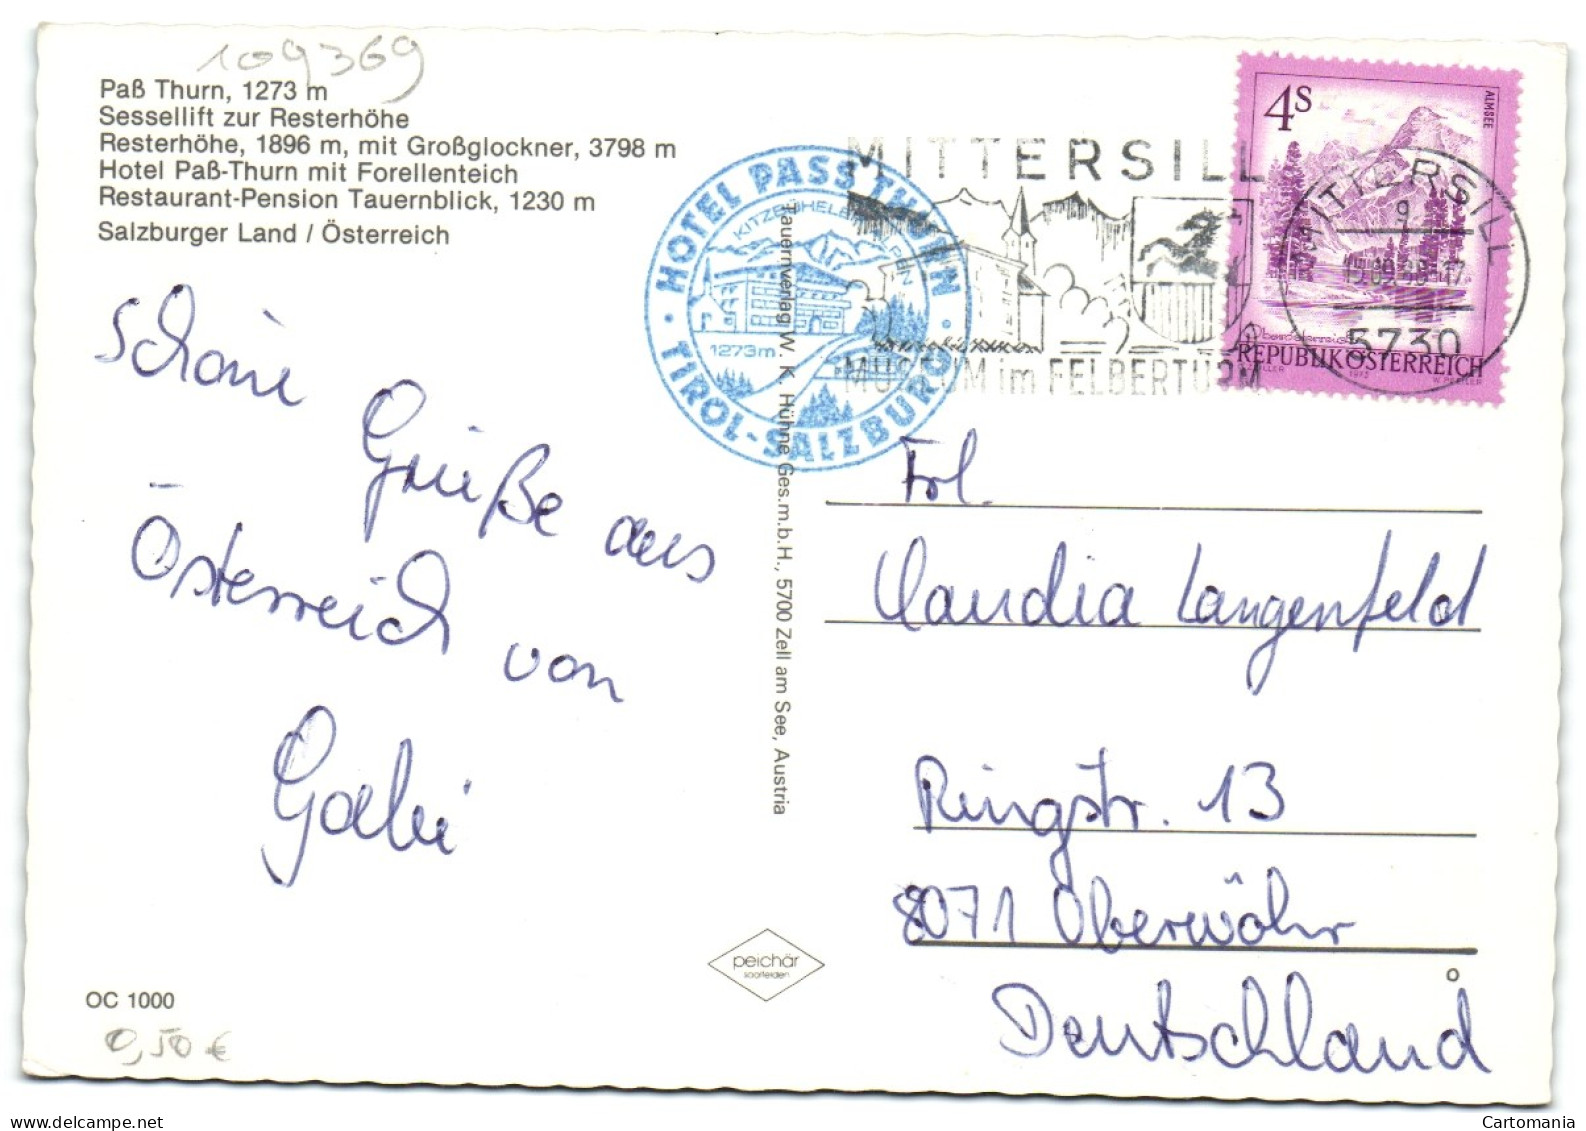 109369
Paß Thurn, 1273 m
Sessellift zur Resterhöhe
Resterhöhe, 1896 m, mit Großglockner, 3798 m
Hotel Paß-Thurn mit Forellenteich
Restaurant-Pension Tauernblick, 1230 m
Salzburger Land / Österreich
Schöne
Grüße aus
Österreich von
Gabi
OC 1000
0,50 €
HOTEL PASS THURN
KITZBÜHELER ALPEN
1273m
TIROL-SALZBURG
Tauernverlag W. K. Hühne Ges.m.b.H., 5700 Zell am See, Austria
peichär
saalfelden
MITTERSILL
MUSEUM im FELBERTURM
4S
ALMSEE
REPUBLIK ÖSTERREICH
MITTERSILL
5730
Frl
Claudia Langenfeld
Ringstr. 13
8071 Oberwöhr
Deutschland
Cartomania